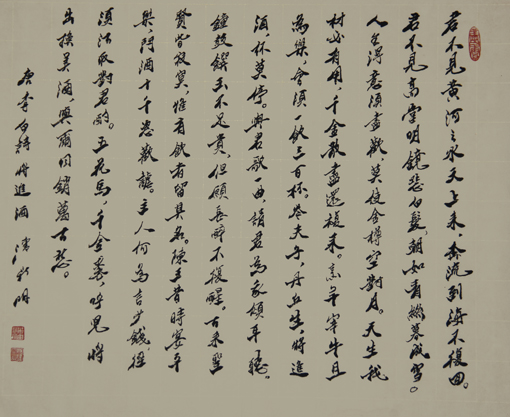 君不見黃河之水天上来,奔流到海不復回。
君不見高堂明鏡悲白髮,朝如青絲暮成雪。
人生得意須盡歡,莫使金樽空對月。天生我
材必有用,千金散盡還復来。烹羊宰牛且
為樂,會須一飲三百杯。岑夫子,丹丘生,將進
酒,杯莫停。與君歌一曲,請君為我傾耳聽。
鐘鼓饌玉不足貴,但願長醉不復醒。古来聖
賢皆寂寞,惟有飲者留其名。陳王昔時宴平
樂,鬥酒十千恣歡謔。主人何為言少錢,徑
須沽取對君酌。五花馬,千金裘,呼兒將
出換美酒,與爾同銷萬古愁。
唐李白詩 將進酒